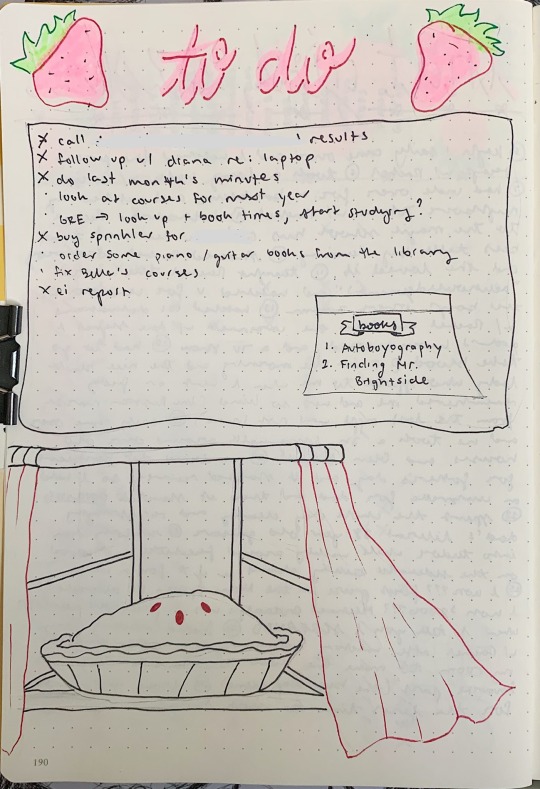 to do
x call : ' results
x follow up w/ diana re: laptop
x do last month's minutes
look at courses for next year
· GRE → look up + book times, start studying?
x buy sprinkler for
· order some piano/guitar books from the library
' fix Belle's courses
x ei report
books
1. Autoboyography
2. Finding Mr.
Brightside
190